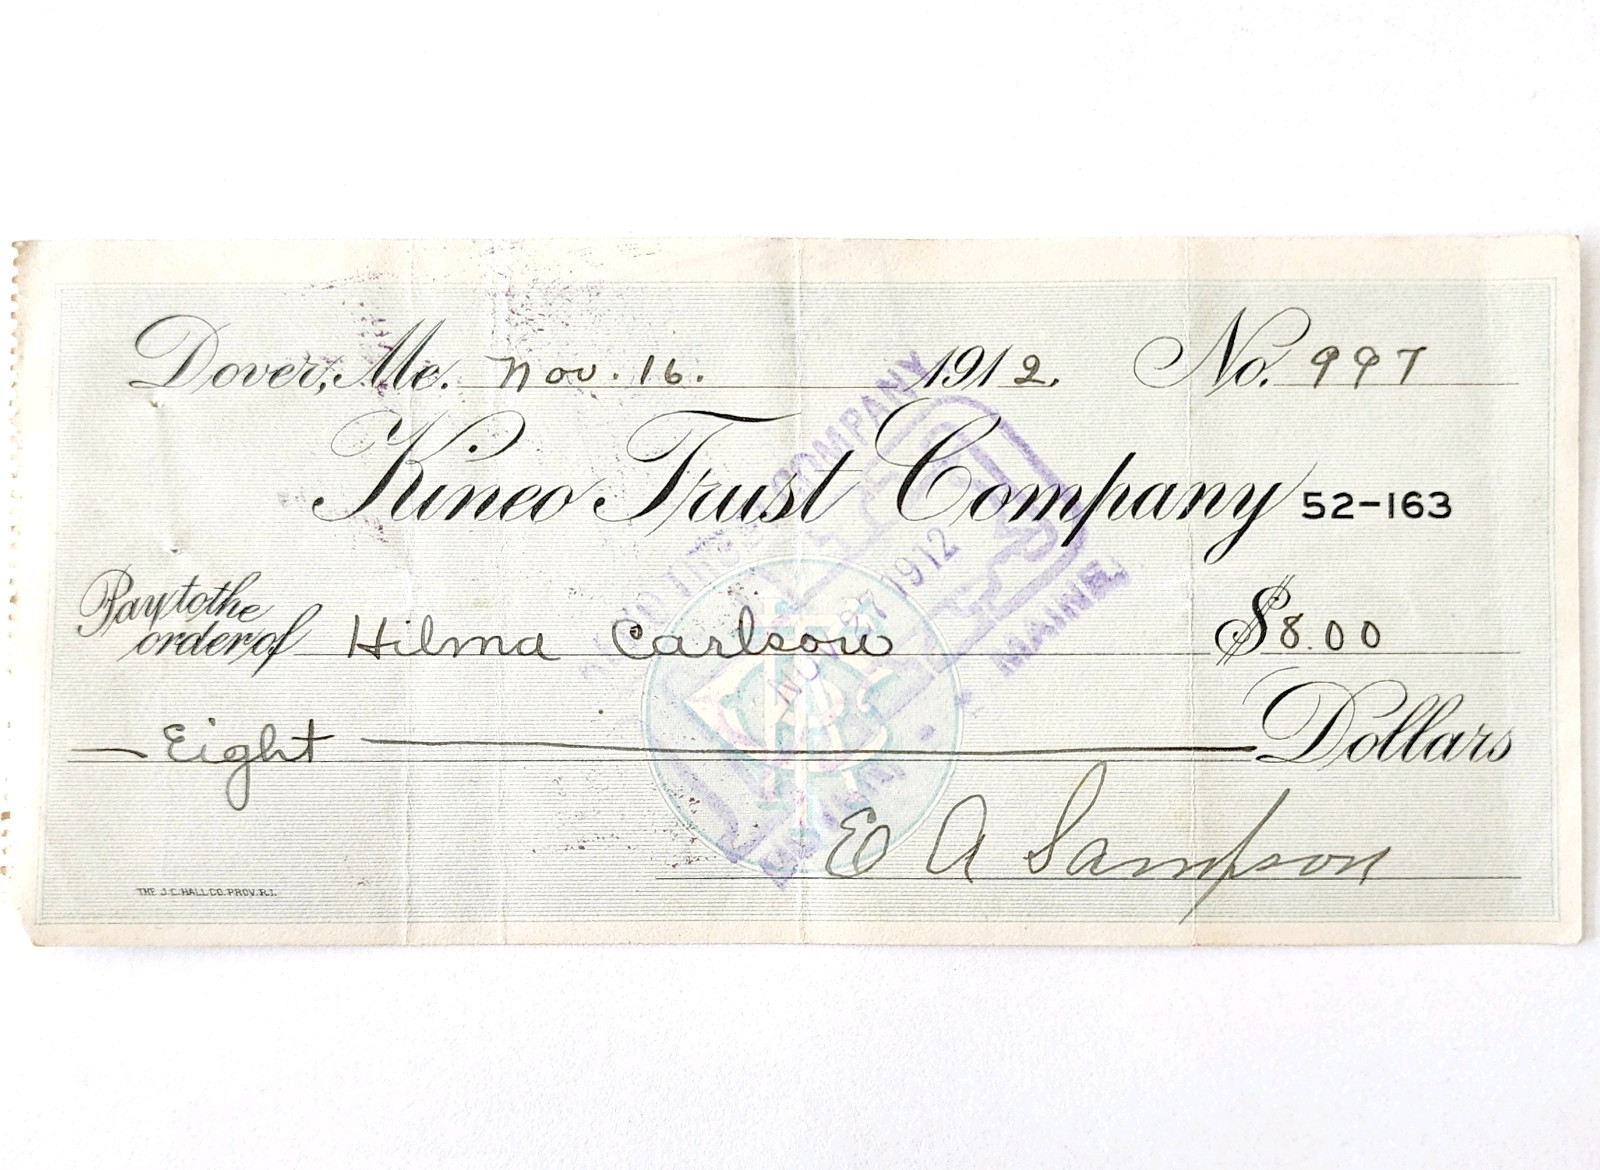 Dover, Me. Nov. 16. 1912. No. 997
Kineo Trust Company 52-163
Pay to the
order of Hilma Carlson $8.00
Eight Dollars
E A Sampson
THE J.C. HALL CO. PROV. R.I.
KINEO TRUST COMPANY
NOV 27 1912
MAINE